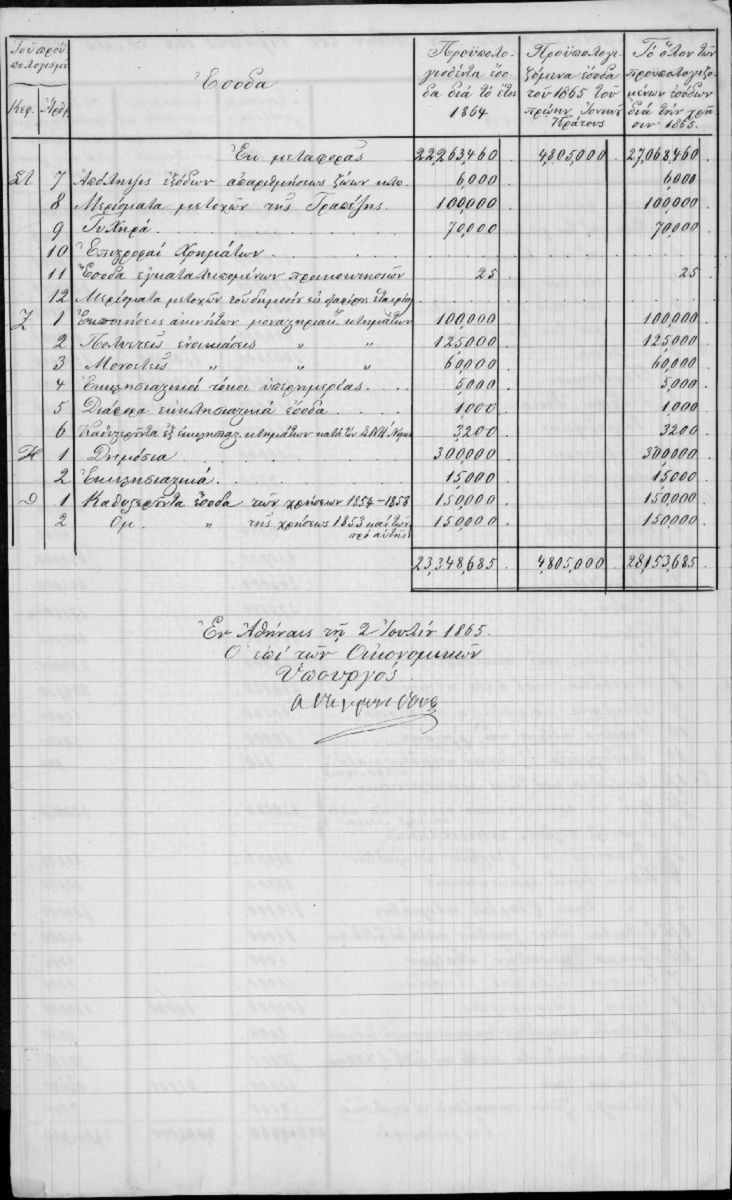 Τοῦ προϋ
πολογισμοῦ
Κεφ. Ἄρθρ.
Ἔσοδα
Προϋπολο-
γισθέντα ἔσο-
δα διὰ τὸ ἔτος
1864
Προϋπολογι-
ζόμενα ἔσοδα
τοῦ 1865 τοῦ
πρώην Ἰονικοῦ
Κράτους
Τὸ ὅλον τῶν
προϋπολογιζο-
μένων ἐσόδων
διὰ τὴν χρῆ-
σιν 1865.
Ἐκ μεταφορᾶς 22,263,460 4,805,000 27,068,460
ΣΤ 7 Ἀπόληψις ἐξόδων ἀπαριθμήσεως ζώων κτλ. 6,000 6,000
8 Μερίσματα μετοχῶν τῆς Τραπέζης 100,000 100,000
9 Τυχηρά 70,000 70,000
10 Ἐπιστροφαὶ Χρημάτων
11 Ἔσοδα ἐγκαταλειπομένων προικοκτησιῶν 25 25
12 Μερίσματα μετοχῶν τοῦ δημοσίου
Ζ 1 Ἐκποιήσεις ἀκινήτων μοναστηριακ. κτημάτων 100,000 100,000
2 Πολυετεῖς ἐνοικιάσεις „ „ 125000 125,000
3 Μονοετεῖς „ „ „ 60,000 60,000
4 Ἐκκλησιαστικοὶ τόκοι ὑπερημερίας 5,000 5,000
5 Διάφορα ἐκκλησιαστικὰ ἔσοδα 1,000 1,000
6 Καθυστεροῦντα ἐξ ἐκκλησιαστ. κτημάτων κατὰ τὸν ΣΛΗ΄ Νόμον 3,200 3200
Η 1 Δημόσια 300000 300000
2 Ἐκκλησιαστικά 15000 15000
Θ 1 Καθυστεροῦντα ἔσοδα τῶν χρήσεων 1854-1858 150,000 150,000
2 Ὁμ. „ τῆς χρήσεως 1853 καὶ τῶν 150,000 150,000
πρὸ αὐτῆς
23,348,685 4,805,000 28,153,685
Ἐν Ἀθήναις τῇ 2 Ἰουλίου 1865.
Ὁ ἐπὶ τῶν Οἰκονομικῶν
Ὑπουργός